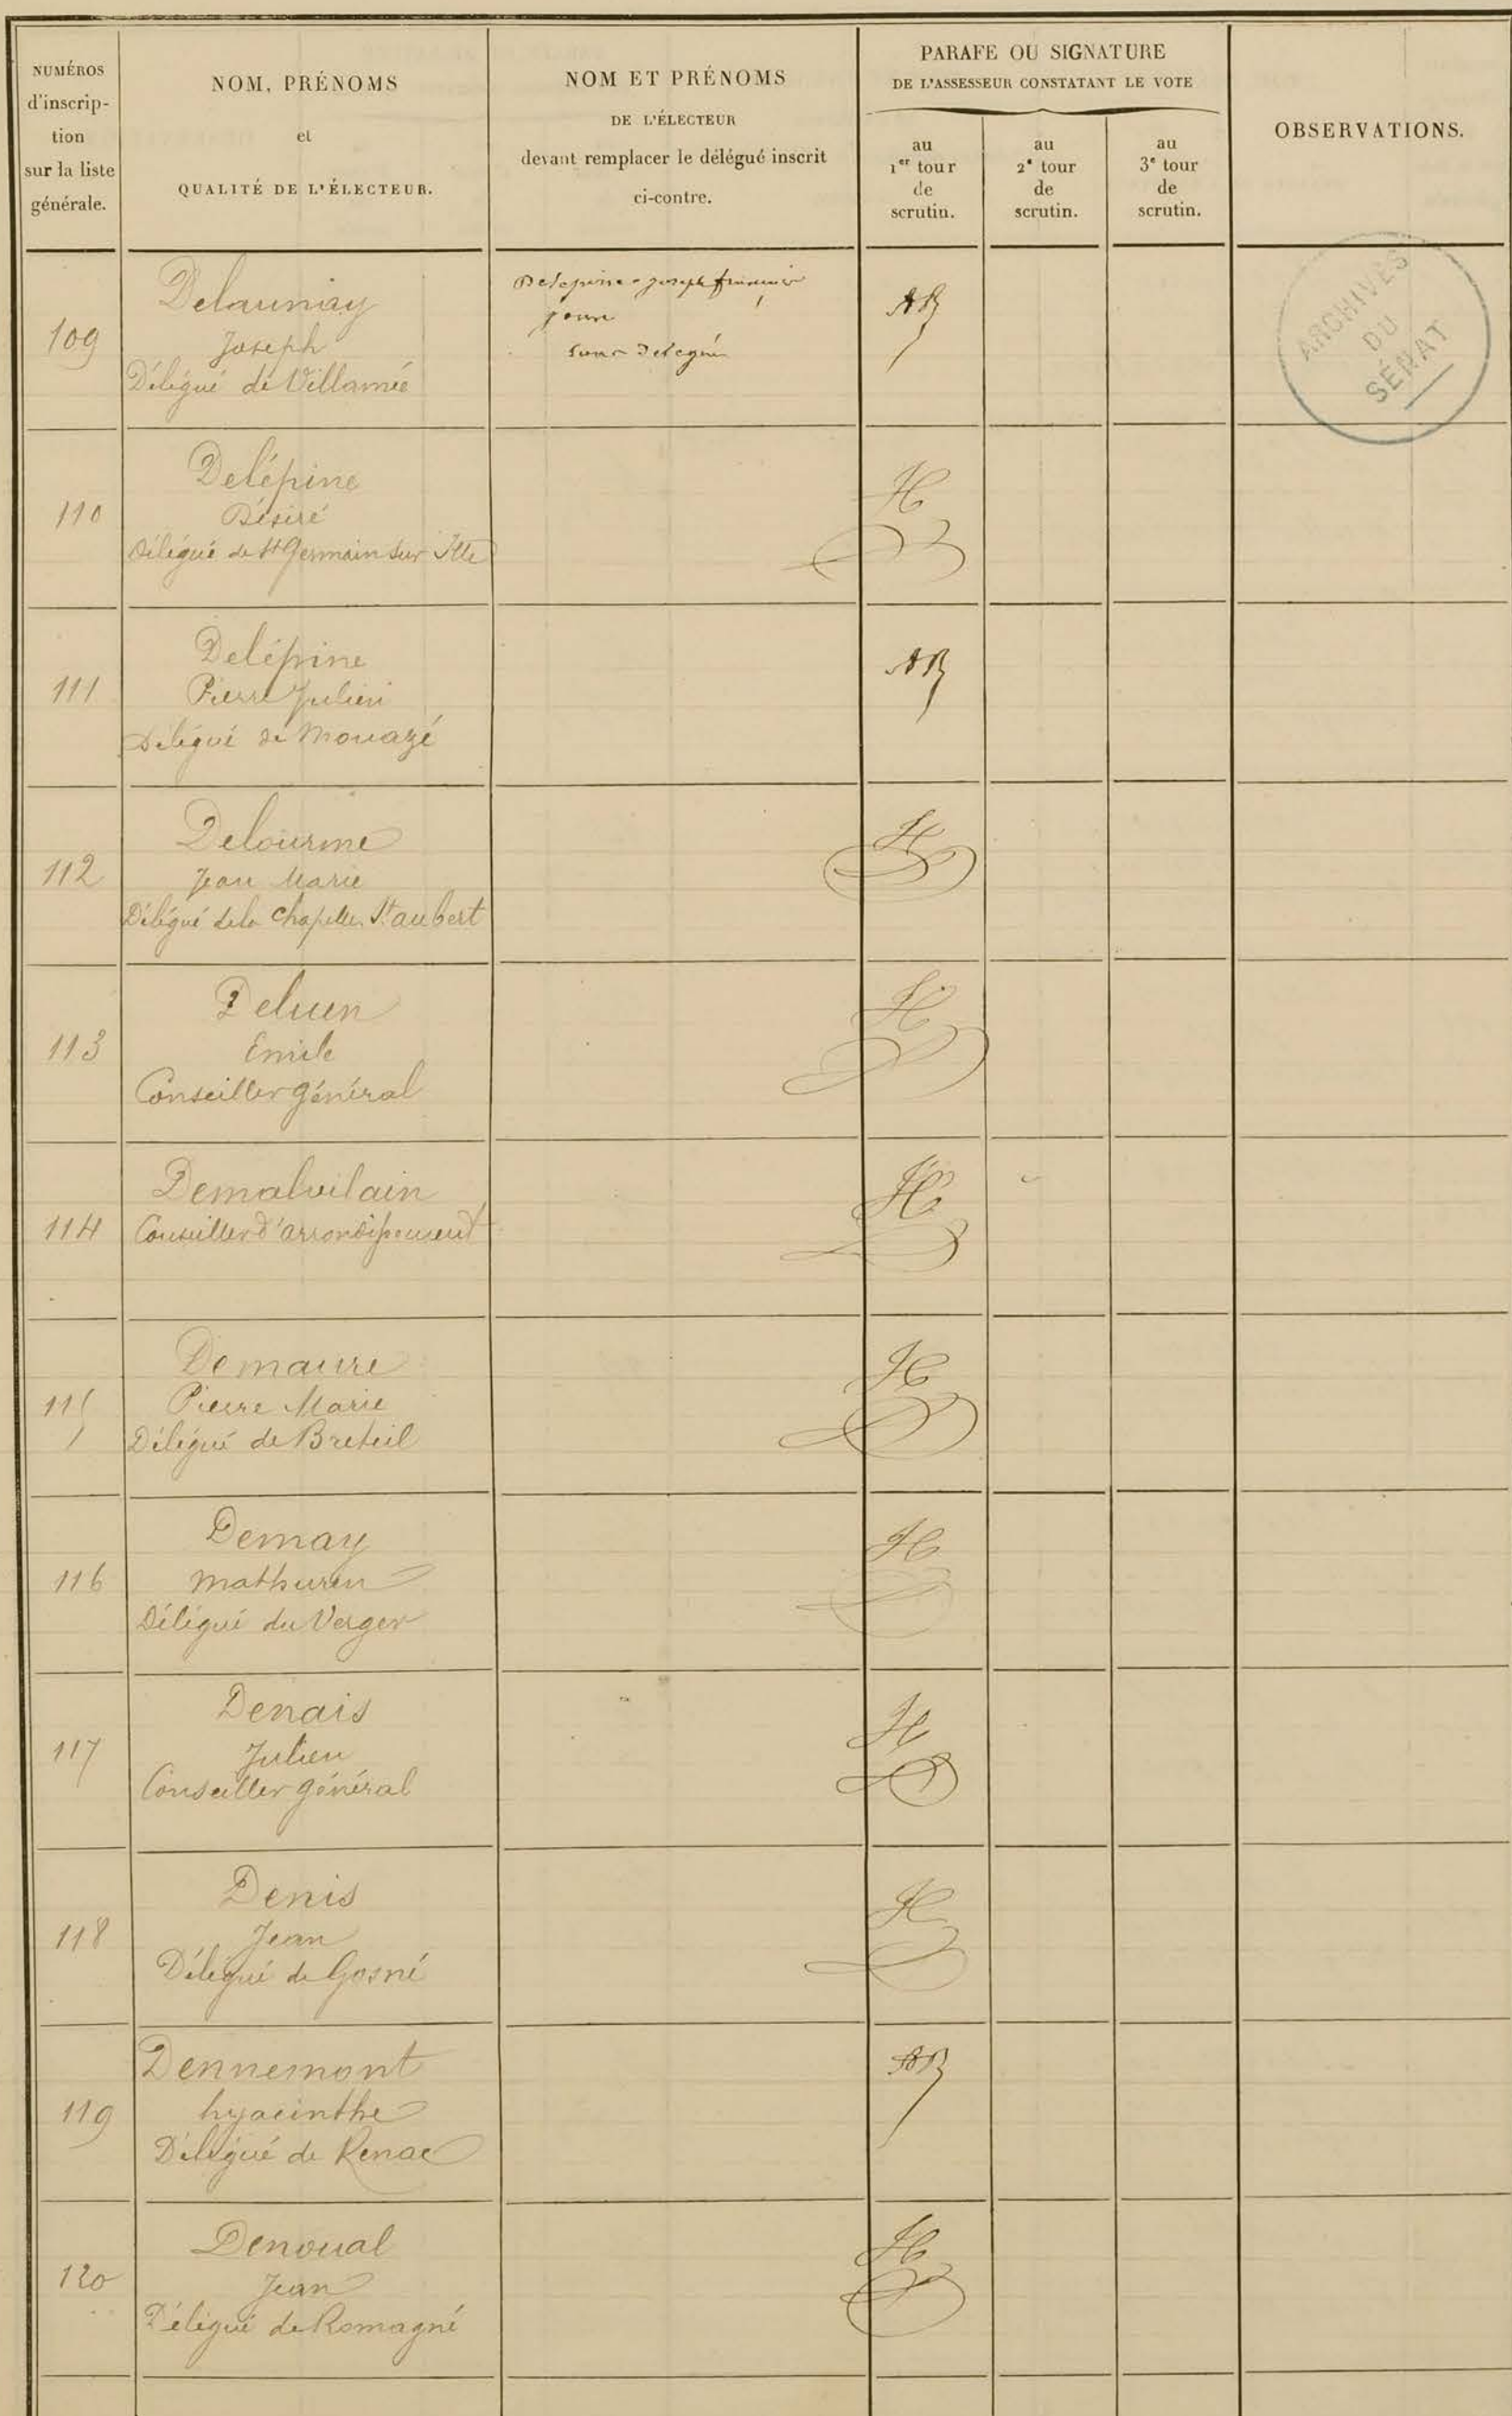 NUMÉROS
d'inscrip-
tion
sur la liste
générale.
NOM, PRÉNOMS
et
QUALITÉ DE L'ÉLECTEUR.
NOM ET PRÉNOMS
DE L'ÉLECTEUR
devant remplacer le délégué inscrit
ci-contre.
PARAFE OU SIGNATURE
DE L'ASSESSEUR CONSTATANT LE VOTE
au
1er tour
de
scrutin.
au
2e tour
de
scrutin.
au
3e tour
de
scrutin.
OBSERVATIONS.
ARCHIVES
DU
SÉNAT
109
Delaunay
Joseph
Délégué de Villamée
Joseph
AB
110
Delépine
Désiré
Délégué de St Germain sur Ille
H
111
Delépine
Pierre Julien
Délégué de Mouazé
AB
112
Delourme
Jean Marie
Délégué de la Chapelle St aubert
H
113
Deluen
Emile
Conseiller général
H
114
Demalvilain
Conseiller d'arrondissement
H
115
Demaure
Pierre Marie
Délégué de Breteil
H
116
Demay
Mathurin
Délégué du Verger
H
117
Denais
Julien
Conseiller général
H
118
Denis
Jean
Délégué de Gosné
H
119
Dennemont
hyacinthe
Délégué de Renac
AB
120
Denoual
Jean
Délégué de Romagné
H